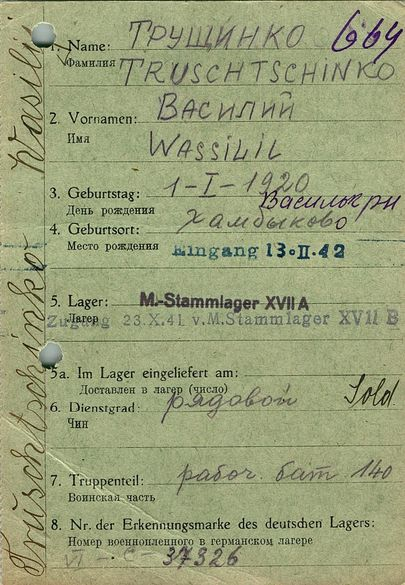 1. Name: ТРУЩИНКО
Фамилия TRUSCHTSCHINKO
2. Vornamen: ВАСИЛИЙ
Имя WASSILIL
3. Geburtstag: 1-I-1920
День рождения
4. Geburtsort: Хамбыково
Место рождения Eingang 13.II.42
5. Lager: M.-Stammlager XVII A
Лагерь
Zugang 23.X.41 v. M. Stammlager XVII B
5a. Im Lager eingeliefert am:
Доставлен в лагер (число)
6. Dienstgrad: рядовой Sold
Чин
7. Truppenteil: рабоч. бат 140
Воинская часть
8. Nr. der Erkennungsmarke des deutschen Lagers:
Номер военнопленного в германском лагере
VI - C - 37326
Truschtschinko Wasili